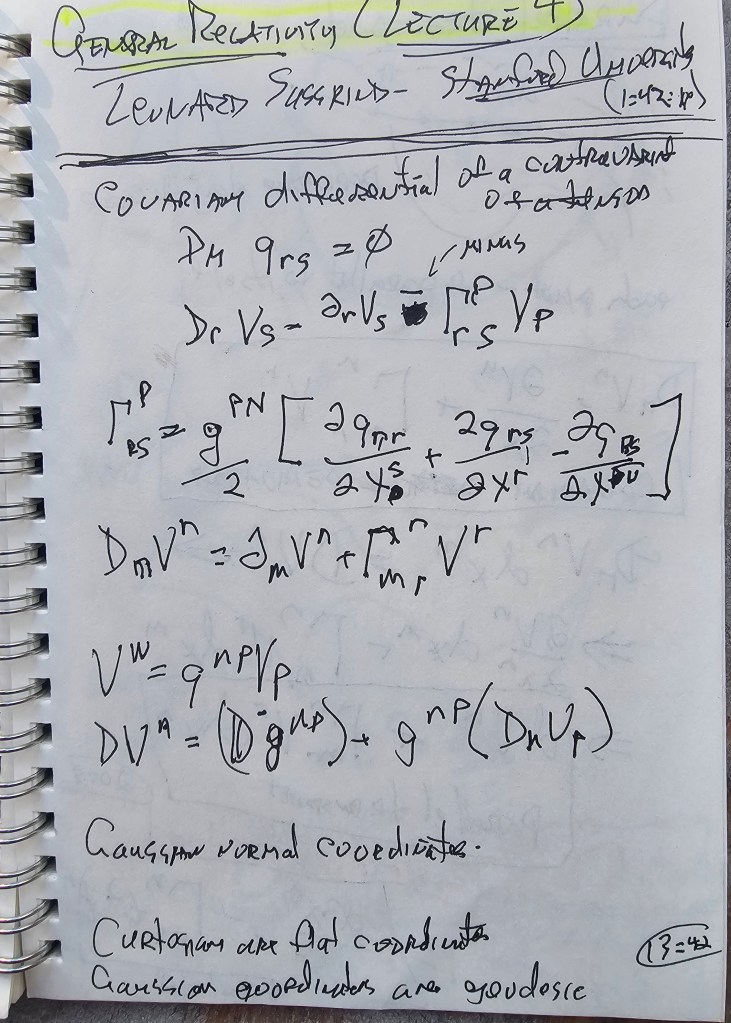 GENERAL RELATIVITY (LECTURE 4)
LEONARD SUSSKIND - STANFORD UNIVERSITY
(1:42:18)
COVARIANT differential of a contravariant
MINUS
D_M g_rs = ∅
D_r V_s = ∂_r V_s - Γ^P_rs V_P
Γ^P_RS = g^PN/2 [ ∂g_nr/∂X^s + ∂g_ns/∂X^r - ∂g_RS/∂X^N ]
D_m V^n = ∂_m V^n + Γ^n_mr V^r
V^N = g^np V_p
DV^n = (D g^np) + g^np (D_n V_p)
Gaussian normal coordinates.
Cartesian are flat coordinates
13:42
Gaussian coordinates are geodesic